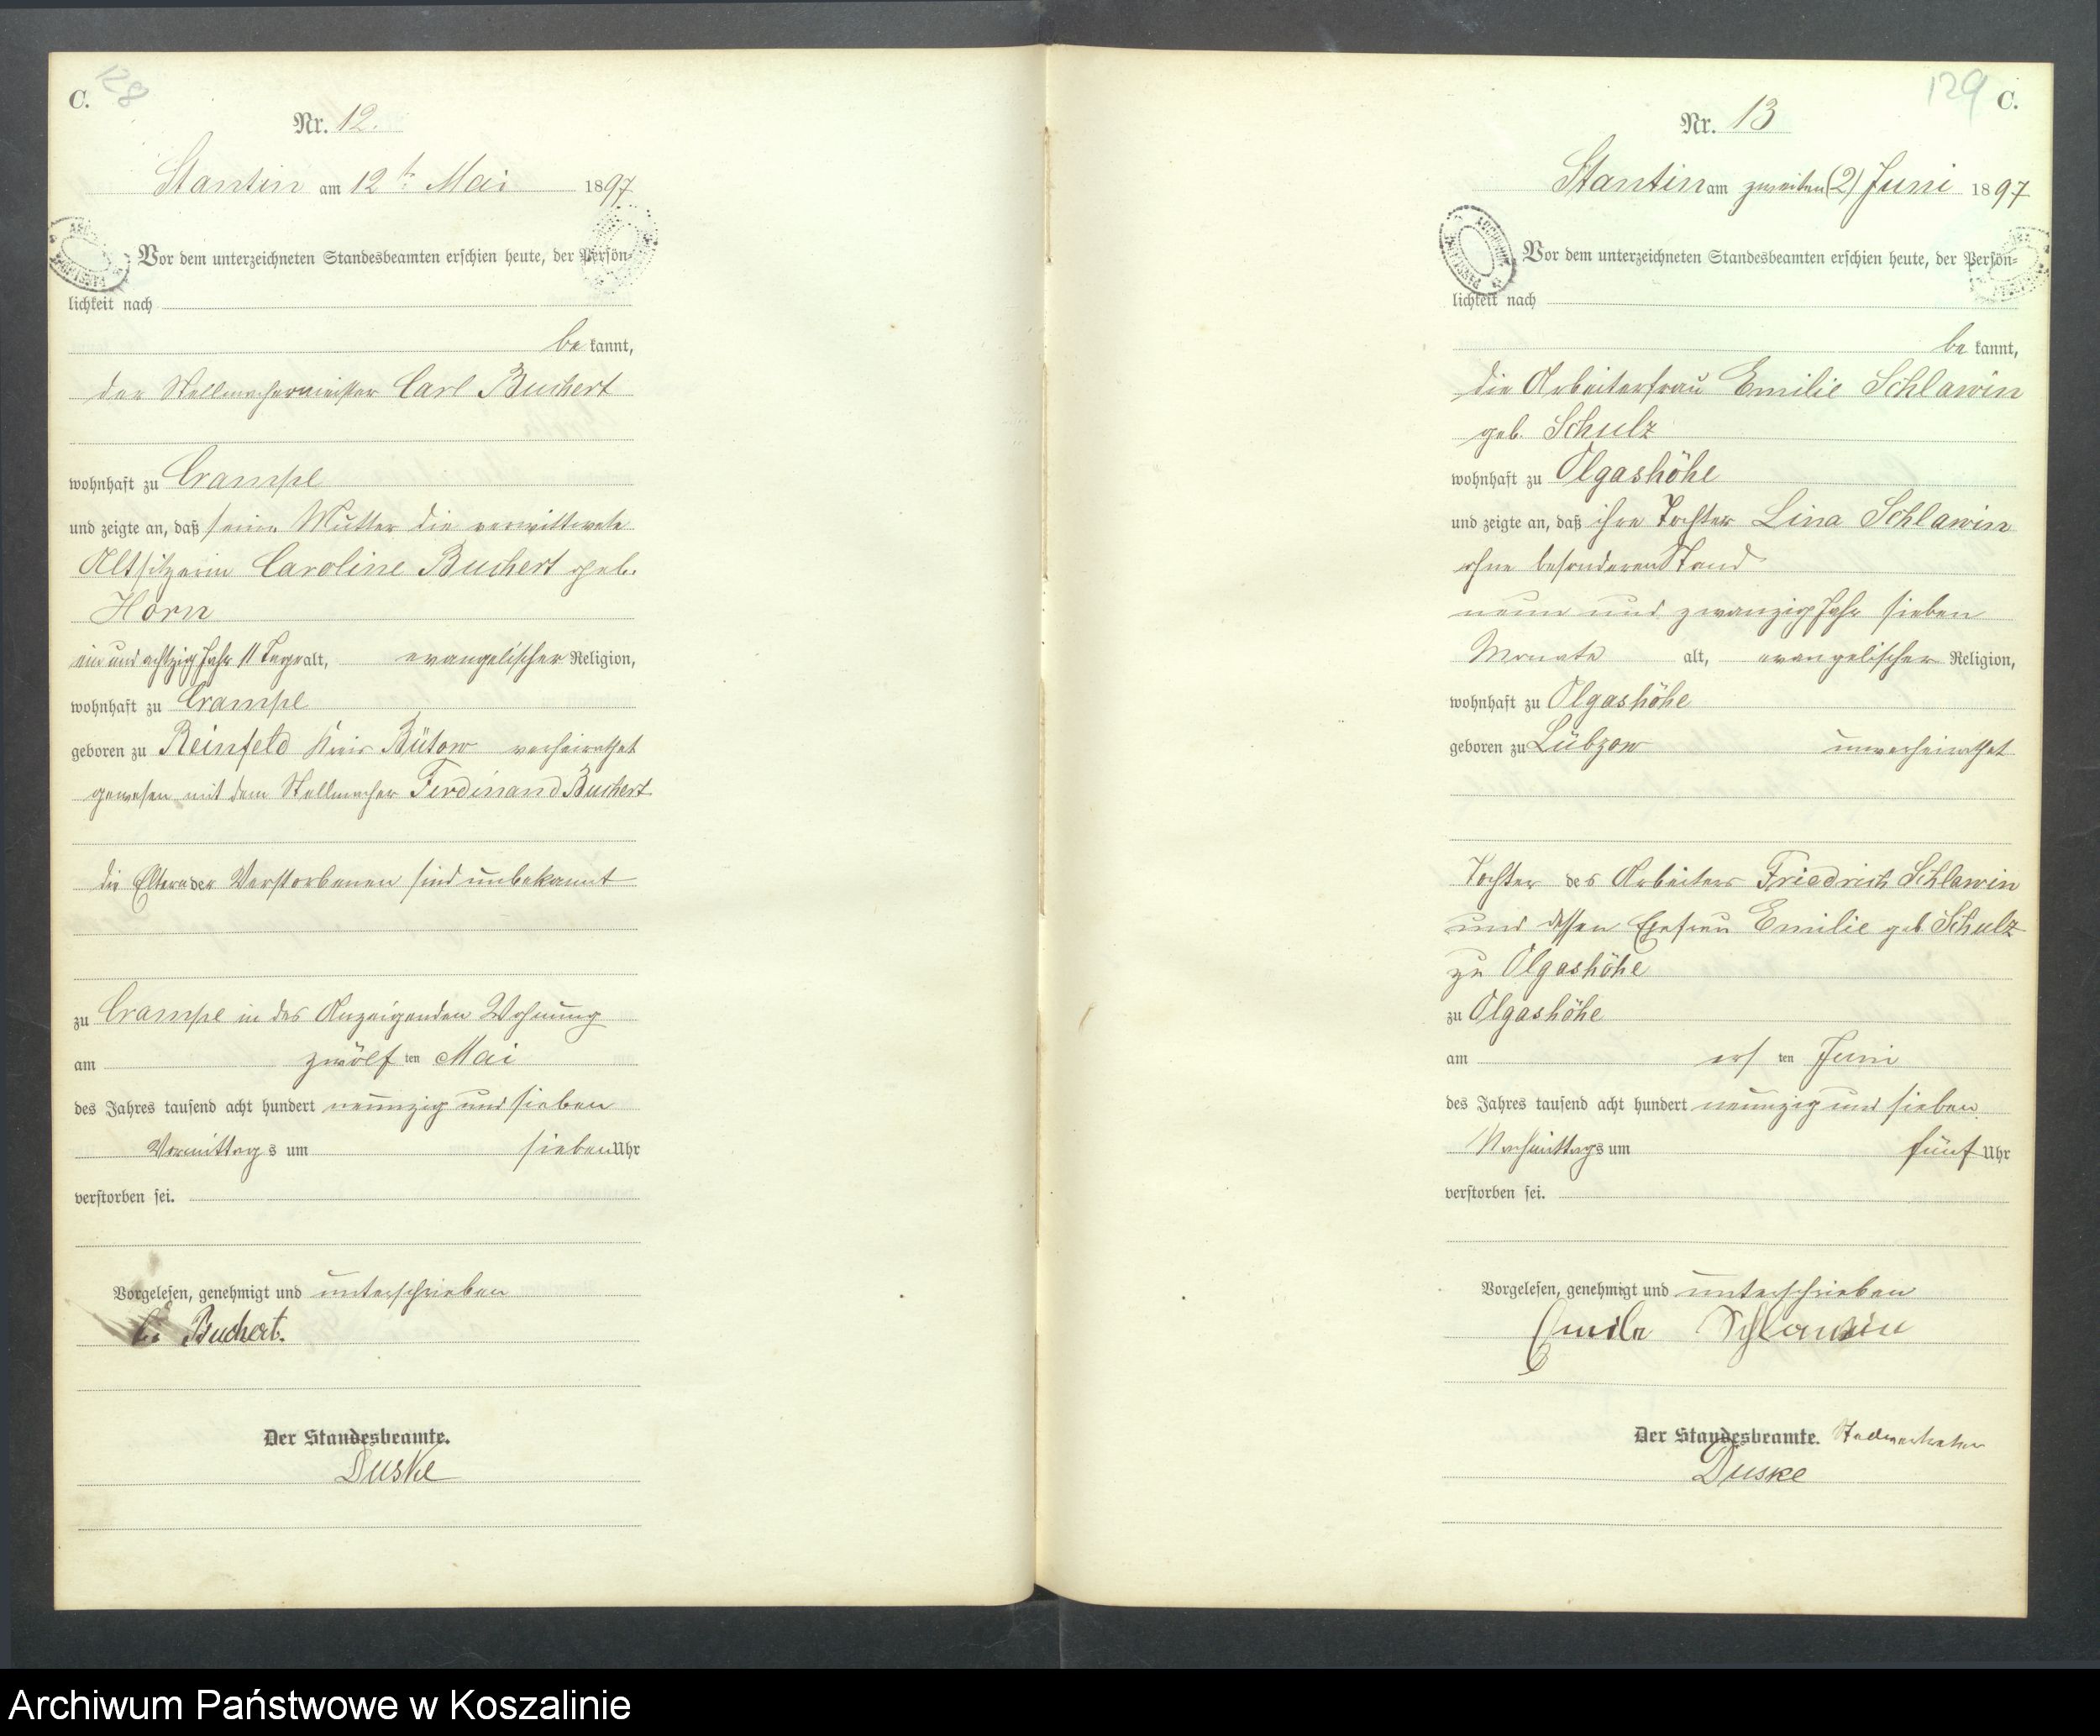 C.
128
Nr. 12.
Stantin am 12t. Mai 1897
Vor dem unterzeichneten Standesbeamten erschien heute, der Persön-
lichkeit nach
be kannt,
der Stellmachermeister Carl Buchert
wohnhaft zu Crampe
und zeigte an, daß seine Mutter die verwittwete
Altsitzerin Caroline Buchert geb.
Horn
ein und achtzig Jahr 11 Tage alt, evangelischer Religion,
wohnhaft zu Crampe
geboren zu Reinfeld Kreis Bütow verheirathet
gewesen mit dem Stellmacher Ferdinand Buchert
die Eltern der Verstorbenen sind unbekannt
zu Crampe in des Anzeigenden Wohnung
am zwölf ten Mai
des Jahres tausend acht hundert neunzig und sieben
Vormittags um sieben Uhr
verstorben sei.
Vorgelesen, genehmigt und unterschrieben
Buchert.
Der Standesbeamte.
Duske
129
C.
Nr. 13
Stantin am zweiten (2) Juni 1897
Vor dem unterzeichneten Standesbeamten erschien heute, der Persön-
lichkeit nach
be kannt,
die Arbeiterfrau Emilie Schlawin
geb. Schulz
wohnhaft zu Olgashöhe
und zeigte an, daß ihre Tochter Lina Schlawin
ohne besonderen Stand
neun und zwanzig Jahr sieben
Monate alt, evangelischer Religion,
wohnhaft zu Olgashöhe
geboren zu Lübzow unverheirathet
Tochter des Arbeiters Friedrich Schlawin
und dessen Ehefrau Emilie geb Schulz
zu Olgashöhe
zu Olgashöhe
am ers ten Juni
des Jahres tausend acht hundert neunzig und sieben
Nachmittags um fünf Uhr
verstorben sei.
Vorgelesen, genehmigt und unterschrieben
Emile Schlawin
Der Standesbeamte.
Duske
Archiwum Państwowe w Koszalinie